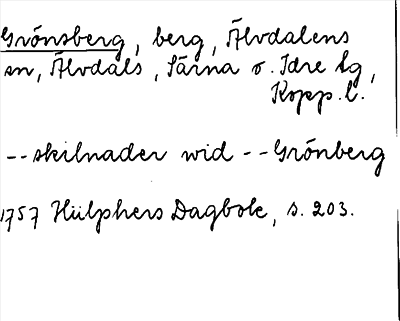 Grönsberg, berg, Älvdalens
sn, Älvdals, Särna o. Idre tg,
Kopp. l.
--skilnader wid --Grönberg
1757 Hülphers Dagbok, s. 203.